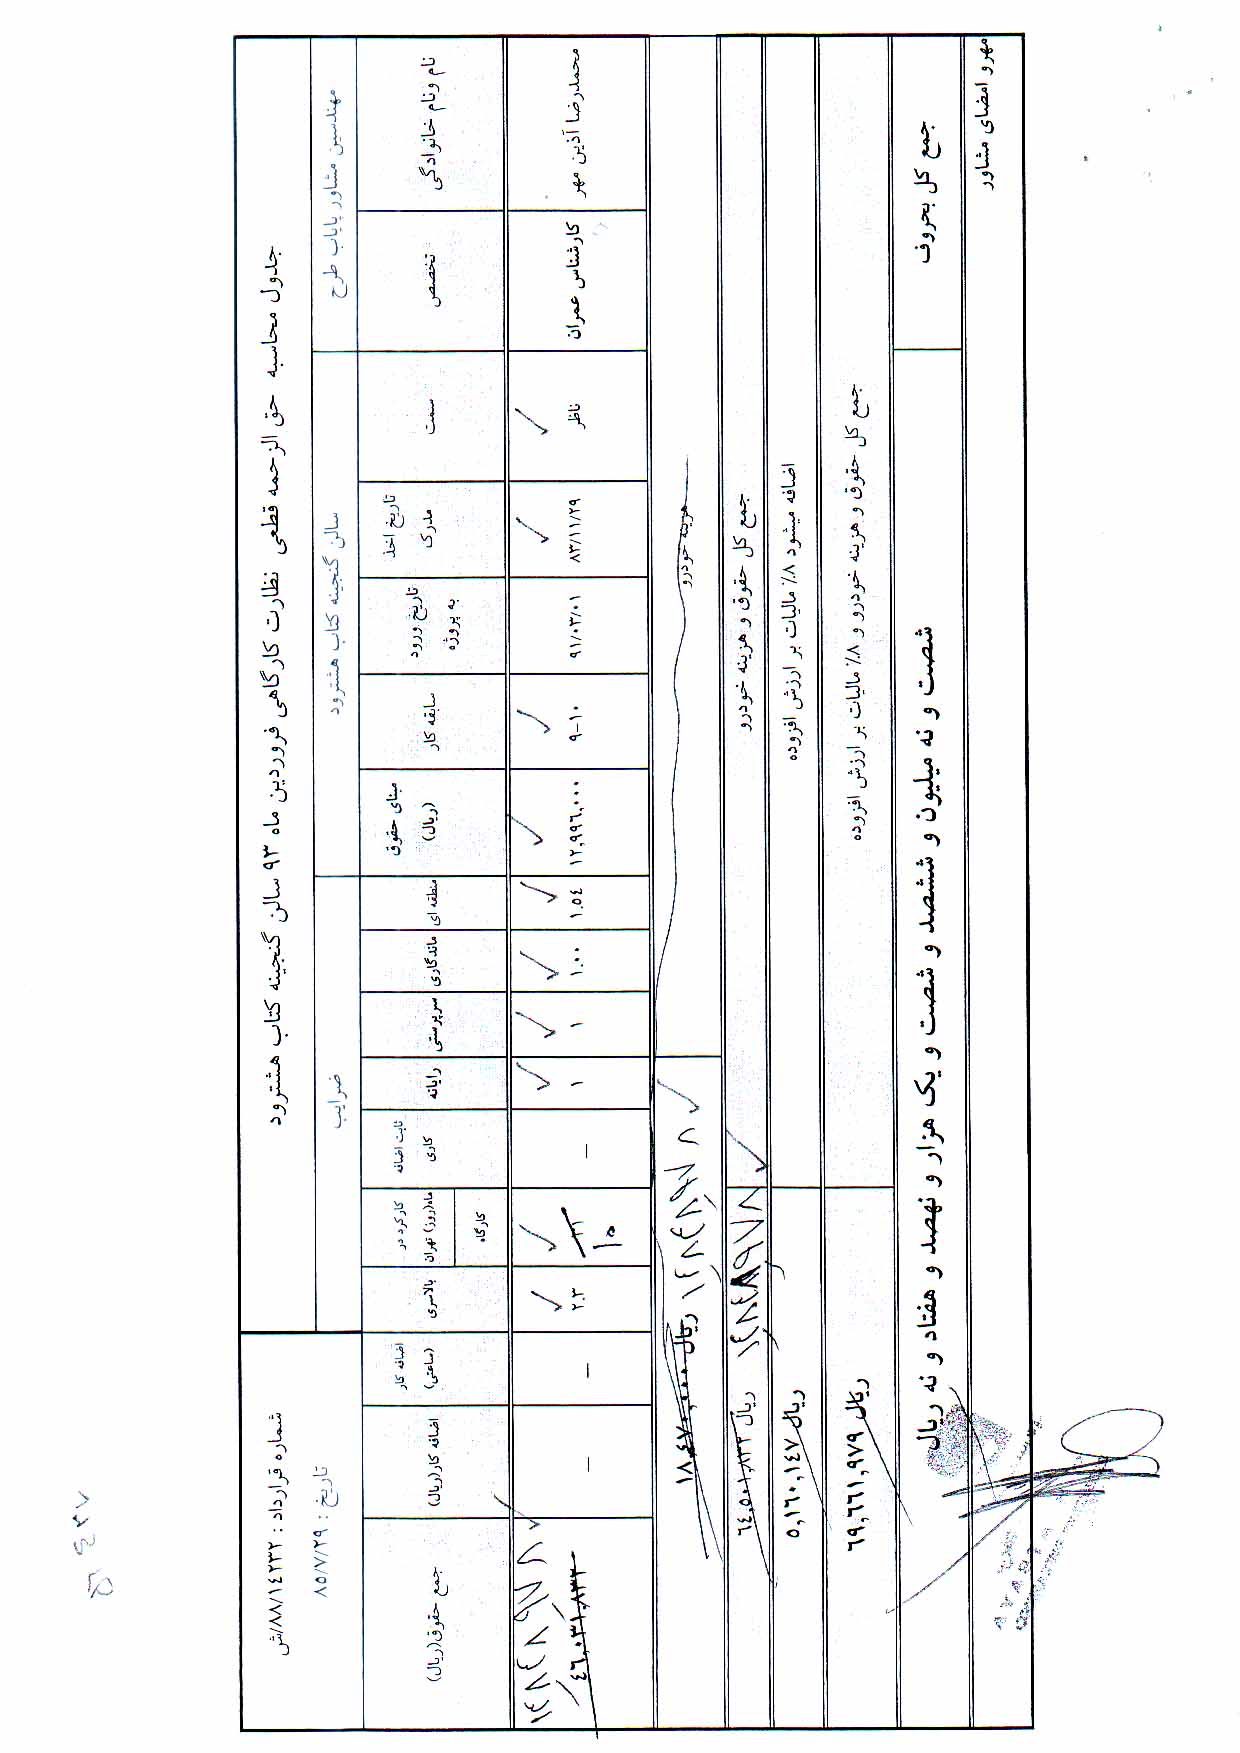 جدول محاسبه حق الزحمه قطعی نظارت کارگاهی فروردین ماه ۹۳ سالن گنجینه کتاب هشترود
شماره قرارداد : ۸۸/۱۴۲۳۲/ش
مهندسین مشاور باباب طرح
سالن گنجینه کتاب هشترود
ضرایب
تاریخ : ۸۵/۷/۲۹
نام ونام خانوادگی
تخصص
سمت
تاریخ اخذ مدرک
تاریخ ورود به پروژه
سابقه کار
مبنای حقوق (ریال)
منطقه ای
ماندگاری
سرپرستی
رایانه
ثابت اضافه کاری
کارکرد در ماه(روز) تهران
کارگاه
بالاسری
اضافه کار (ساعتی)
اضافه کار(ریال)
جمع حقوق(ریال)
محمدرضا آذین مهر
کارشناس عمران
ناظر
۸۳/۱۱/۲۹
۹۱/۰۳/۰۱
۹-۱۰
۱۲,۹۹۶,۰۰۰
۱.۵٤
۱.۰۰
۱
۱
–
۳۱
۱۰
۲.۳
–
–
۱۴۸۴۸۹۷۸
٤٦,۰۳۱,۸۳۲
هزینه خودرو
۱۴۸۴۸۹۷۸
۱۸,٤۷۰,۰۰۰ ریال
جمع کل حقوق و هزینه خودرو
۱۴۸۴۸۹۷۸
٦٤,۵۰۱,۸۳۲ ریال
اضافه میشود ۸٪ مالیات بر ارزش افزوده
۵,۱٦۰,۱٤۷ ریال
جمع کل حقوق و هزینه خودرو و ۸٪ مالیات بر ارزش افزوده
٦۹,٦٦۱,۹۷۹ ریال
جمع کل بحروف
شصت و نه میلیون و ششصد و شصت و یک هزار و نهصد و هفتاد و نه ریال
مهرو امضای مشاور